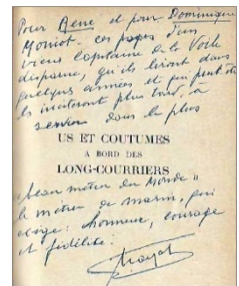 Pour René et pour Dominique
Moniot. ces pages d'un
vieux Capitaine de la Voile
disparue, qu'ils liront dans
quelques années et qui peut-être
les inciteront plus tard, à
servir dans le plus
US ET COUTUMES
A BORD DES
LONG-COURRIERS
"beau métier du Monde"
le métier de marin, qui
exige: honneur, courage
et fidélité.